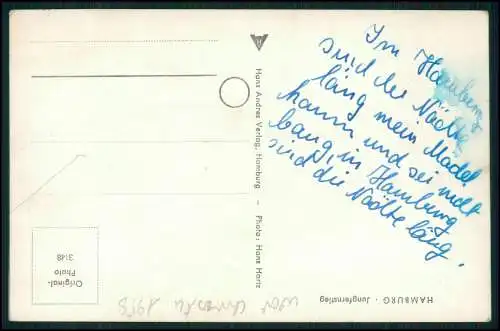 Im Hamburg
sind die Nächte
lang mein Mädel
komm und sei nicht
bang, in Hamburg
sind die Nächte lang.
Hans Andres Verlag, Hamburg - Photo: Hans Hartz
HAMBURG · Jungfernstieg
Original-
Photo
3148
1958